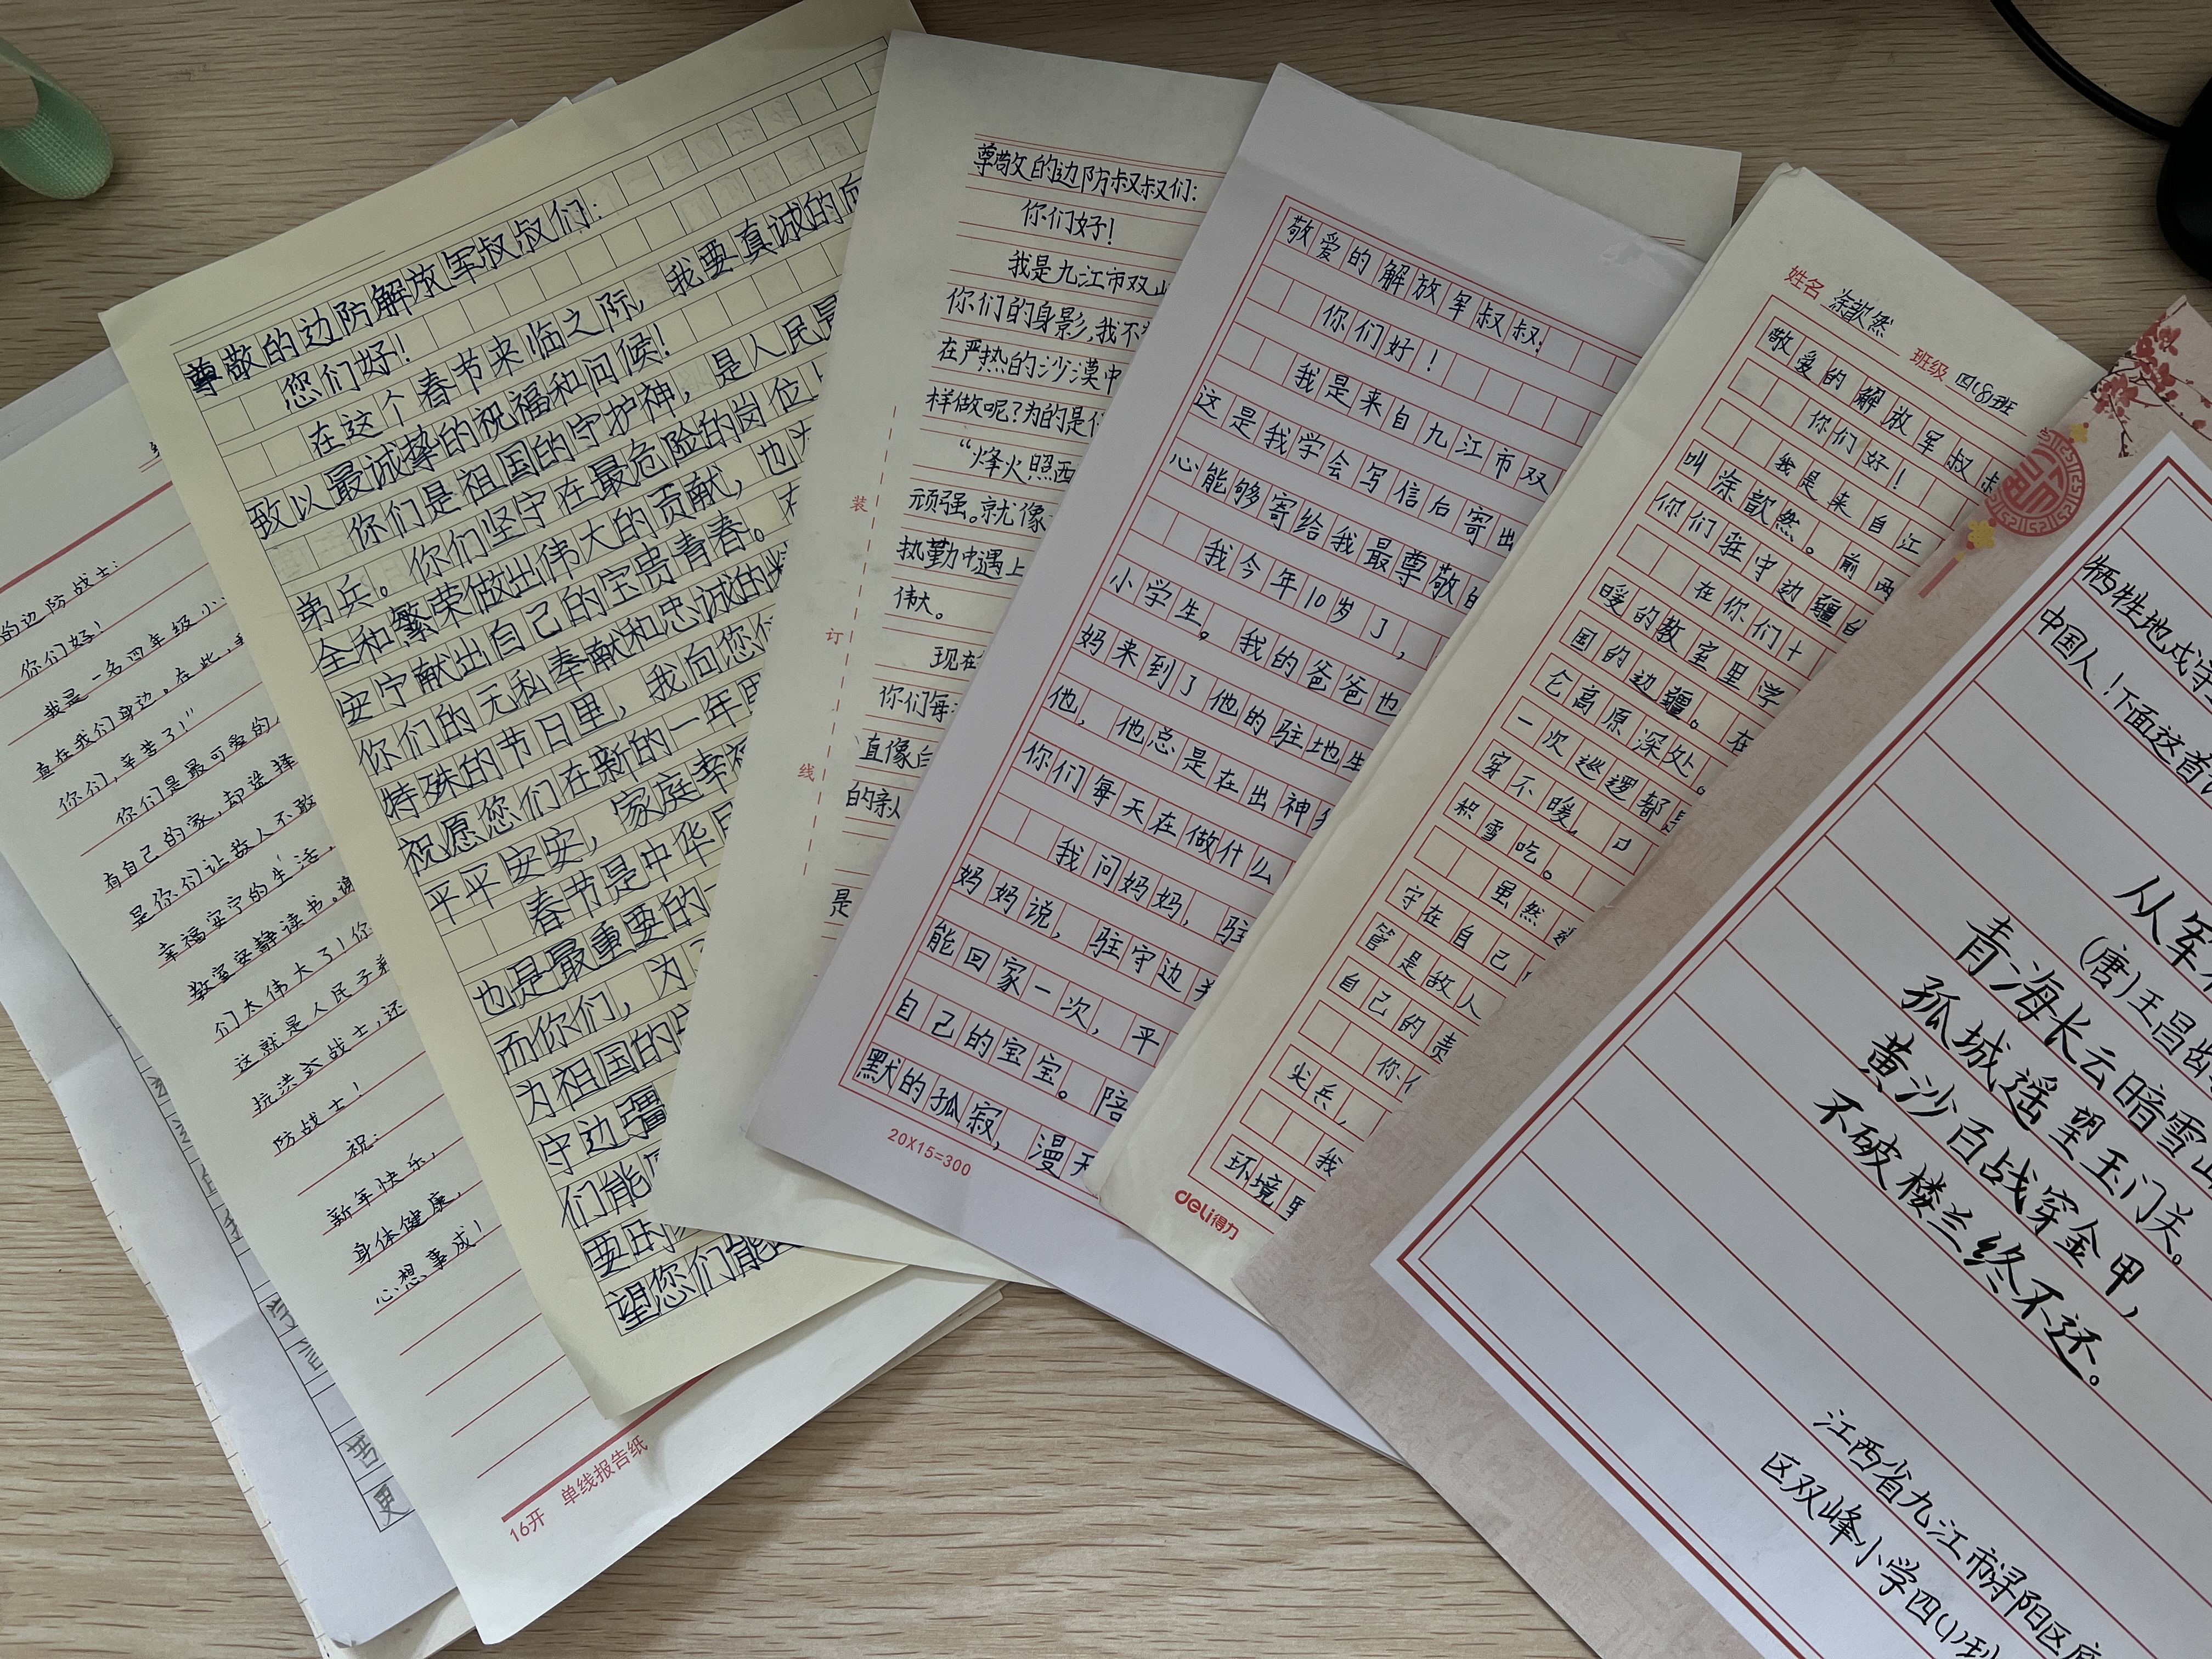 的边防战士:
你们好!
我是一名四年级小
直在我们身边。在此,
你们,辛苦了!"
你们是最可爱的
有自己的家,却选择
是你们让敌人不敢
幸福安宁的生活,
教室安静读书。谢
们太伟大了!你
这就是人民子弟
抗洪 战士,还
防战士!
祝:
新年快乐,
身体健康,
心想事成!
16开 单线报告纸
尊敬的边防解放军叔叔们:
您们好!
在这个春节来临之际,我要真诚的向
致以最诚挚的祝福和问候!
你们是祖国的守护神,是人民
弟兵。你们坚守在最危险的岗位上
全和繁荣做出伟大的贡献,也
安宁献出自己的宝贵青春。
你们的无私奉献和忠诚的
特殊的节日里,我向您
祝愿您们在新的一年里
平平安安,家庭幸福
春节是中华民
也是最重要的一
而你们,为
为祖国的
守边疆
们能
要的
望您们能
尊敬的边防叔叔们:
你们好!
我是九江市双
你们的身影,我不
在严热的沙漠中
样做呢?为的是
“烽火照西
顽强。就像
执勤中遇上
伟大。
现在
你们每
直像
的亲人
是
装
订
线
敬爱的解放军叔叔:
你们好!
我是来自九江市双
这是我学会写信后寄出
心能够寄给我最尊敬的
我今年10岁了,
小学生。我的爸爸也
妈来到了他的驻地生
他,他总是在出神
你们每天在做什么
我问妈妈,驻
妈妈说,驻守边
能回家一次,平
自己的宝宝。陪
默的孤寂,漫天
20X15=300
姓名 涂歆然 班级 四(8)班
敬爱的解放军叔叔
你们好!
我是来自江
叫涂歆然。前两
你们驻守边疆的
在你们十
暖的教室里学
国的边疆。在
仑高原深处。
一次巡逻都
穿不暖,口
积雪吃。
虽然
守在自己
管是敌人
自己的责
你们
尖兵,
我
环境
deli得力
牺牲地戍守
中国人!下面这首
从军行
(唐)王昌龄
青海长云暗雪山
孤城遥望玉门关。
黄沙百战穿金甲,
不破楼兰终不还。
江西省九江市浔阳区
区双峰小学四(1)班